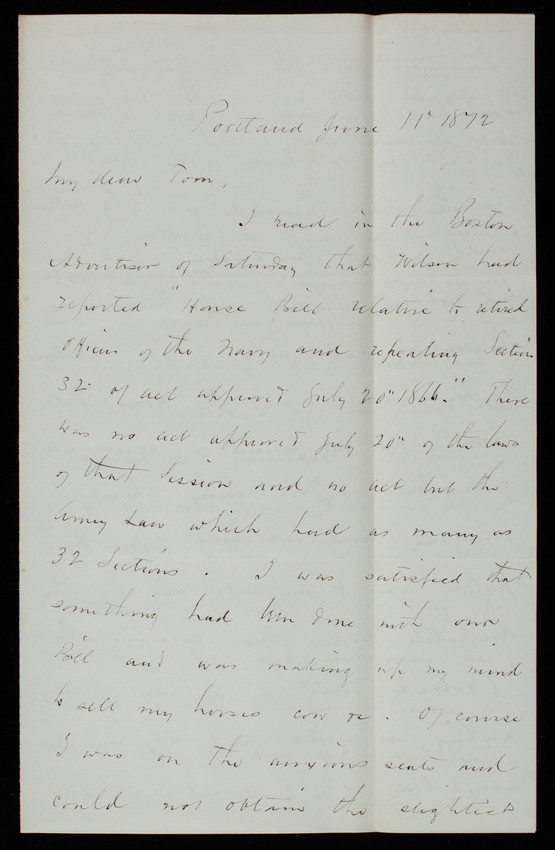 Portland June 11" 1872
My dear Tom,
I read in the Boston
Advertiser of Saturday that Wilson had
reported "House Bill relative to retired
Officers of the Navy and repealing Section
32 of act approved July 20" 1866." There
was no act approved July 20" of the laws
of that Session and no act but the
Army Law which had as many as
32 Sections. I was satisfied that
something had been done with our
Bill and was making up my mind
to sell my horses cow &c. Of course
I was on the anxious seats and
could not obtain the slightest